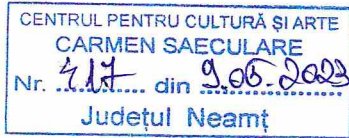 CENTRUL PENTRU CULTURĂ ȘI ARTE
CARMEN SAECULARE
Nr. 417 din 9.05.2023
Județul Neamț